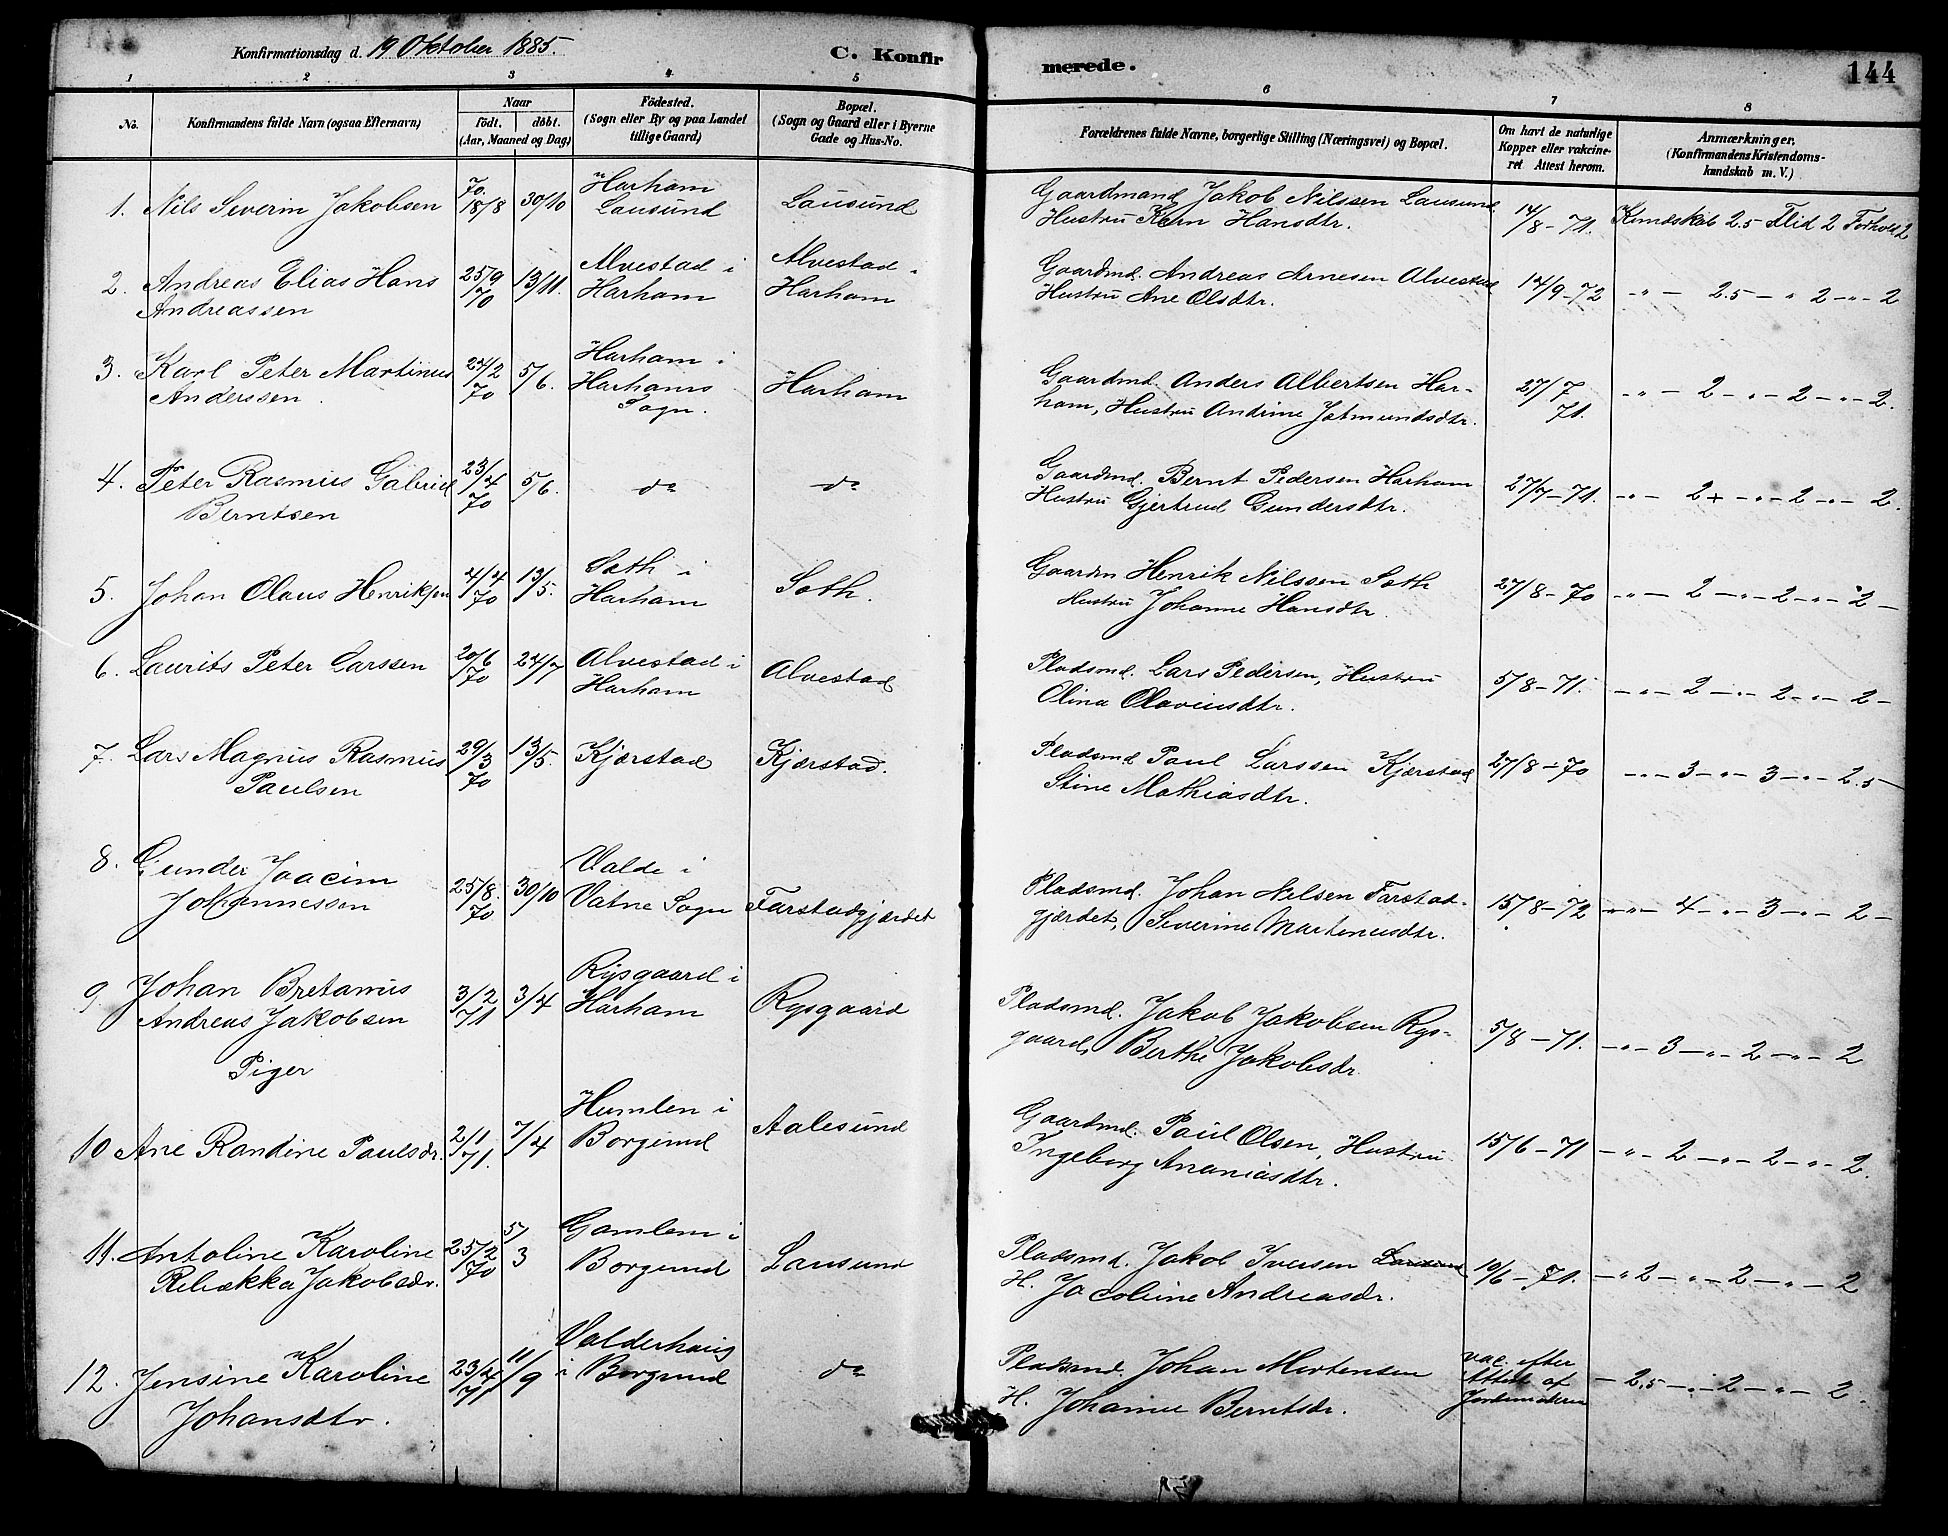 Konfirmationsdag d. 19 Oktober 1885. C. Konfirmerede. 144
1 2 3 4 5 6 7 8
No. Konfirmandens fulde Navn (ogsaa Efternavn) Naar födt. döbt. (Aar, Maaned og Dag)
Födested. (Sogn eller By og paa Landet tillige Gaard)
Bopæl. (Sogn og Gaard eller i Byerne Gade og Hus-No.
Forældrenes fulde Navne, borgerlige Stilling (Næringsvei) og Bopæl.
Om havt de naturlige Kopper eller vakcineret Attest herom.
Anmærkninger, (Konfirmandens Kristendomskundskab m. V.)
1. Nils Severin Jakobsen 70. 18/8 30/10 Harham Lausund Lausund Gaardmand Jakob Nilssen Lausund 14/8-71. Kundskab 2.5 Flid 2 Forhold 2
Hustru Karn Hansdtr.
2. Andreas Elias Hans 25/9 70 13/11. Alvestad i Harham Alvestad i Harham Gaardmd. Andreas Arnesen Alvestad 14/9-72 -"- 2.5 -"- 2 -"- 2
Andreassen Hustru Ane Olsdtr.
3. Karl Peter Martinus 24/2 70 5/6. Harham i Harhams Sogn. Harham Gaardmd. Anders Albertsen Har- 27/7 71. -"- 2 -"- 2 -"- 2.
Anderssen. ham, Hustru Andrine Jetmundsdtr.
4. Peter Rasmus Gabriel 23/4 70 5/6. do do Gaardmd. Bernt Pedersen Harham 27/7-71. -"- 2+ -"- 2 -"- 2.
Berntsen Hustru Gjertrud Gundersdtr.
5. Johan Olaus Henriksen 4/4 70 13/5. Søth i Harham Søth. Gaardm Henrik Nilssen Søth 27/8-70 -"- 2 -"- 2 -"- 2 -
Hustru Johanne Hansdtr.
6. Laurits Peter Larssen 20/6 70 24/7 Alvestad i Harham Alvestad Pladsmd. Lars Pedersen, Hustru 5/8-71. -"- 2 -"- 2 -"- 2 -
Olina Olaveusdtr.
7. Lars Magnus Rasmus 29/3 70 13/5. Kjærstad Kjærstad. Pladsmd Paul Larssen Kjærstad 27/8-70 -"- 3 -"- 3 -"- 2.5 -
Paulsen Stine Mathiasdtr.
8. Gunder Joacim 25/8. 70 30/10 Valde i Vatne Sogn Farstadgjærdet Pladsmd. Johan Nilsen Farstad- 15/8-72 -"- 4 -"- 3 -"- 2 -
Johannessen gjærdet, Severine Martineusdtr.
9. Johan Bretanus 3/2 71 3/4 Rysgaard i Harham Rysgaard Pladsmd. Jakob Jakobsen Rys- 5/8-71. -"- 3 -"- 2 -"- 2
Andreas Jakobsen gaard, Berthe Jakobsdr
Piger
10 Ane Randine Paulsdr. 2/1 71. 7/4 Humlen i Borgund Aalesund Gaardmd. Paul Olsen, Hustru 15/6-71 -"- 2 -"- 2 -"- 2.
Ingeborg Ananiasdtr.
11. Antoline Karoline 25/2 70 5/3 Gamlem i Borgund Lausund Pladsmd. Jakob Iversen Lausund 10/6-71. -"- 2 -"- 2 -"- 2
Rebekka Jakobsdr. H. Jacobine Andreasdr.
12. Jensine Karoline 23/4 71 11/9 Valderhaug i Borgund do Pladsmd. Johan Mortensen vac. efter Attest af Jordemoderen - 2.5 -"- 2 -"- 2.
Johansdtr. H. Johanne Berntsdr.